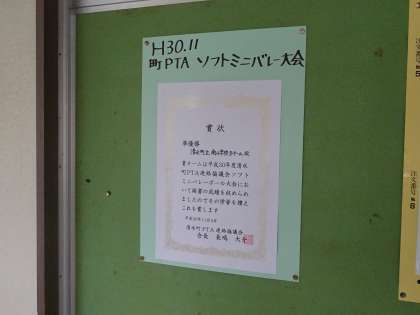 H30.11
町PTA ソフトミニバレー大会
賞状
準優勝
清水町立南小学校
貴チームは平成30年度清水
町PTA連絡協議会ソフト
ミニバレーボール大会にお
いて頭書の成績を収められ
ましたのでその栄誉を讃え
これを賞します
清水町PTA連絡協議会
会長
注文番号
注文番号